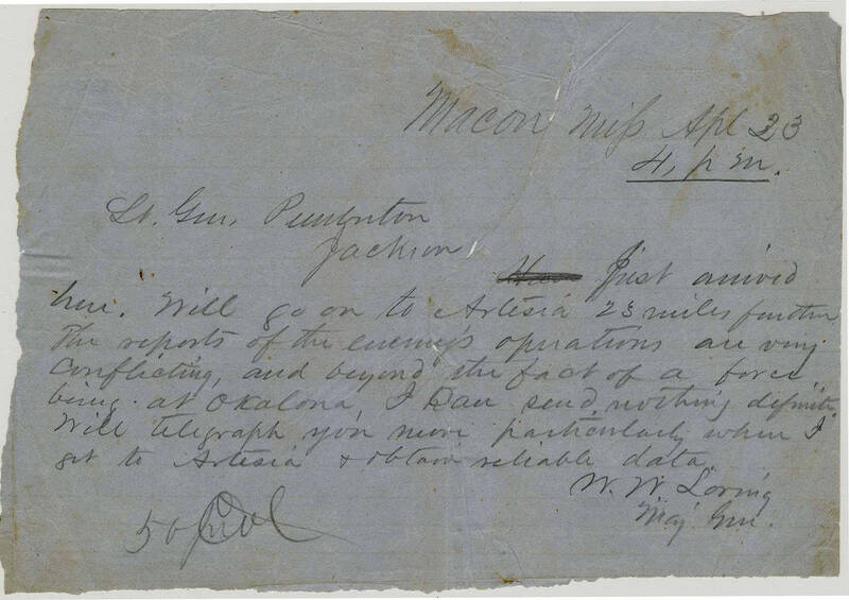 Macon Miss Apl 23
4, p m.
Lt. Gen. Pemberton
Jackson
Just arrived
here. Will go on to Artesia 23 miles further
The reports of the enemy's operations are very
conflicting, and beyond the fact of a force
being at Okalona, I can send nothing definite
Will telegraph you more particularly when I
get to Artesia & obtain reliable data.
W. W. Loring
Maj Gen.
50